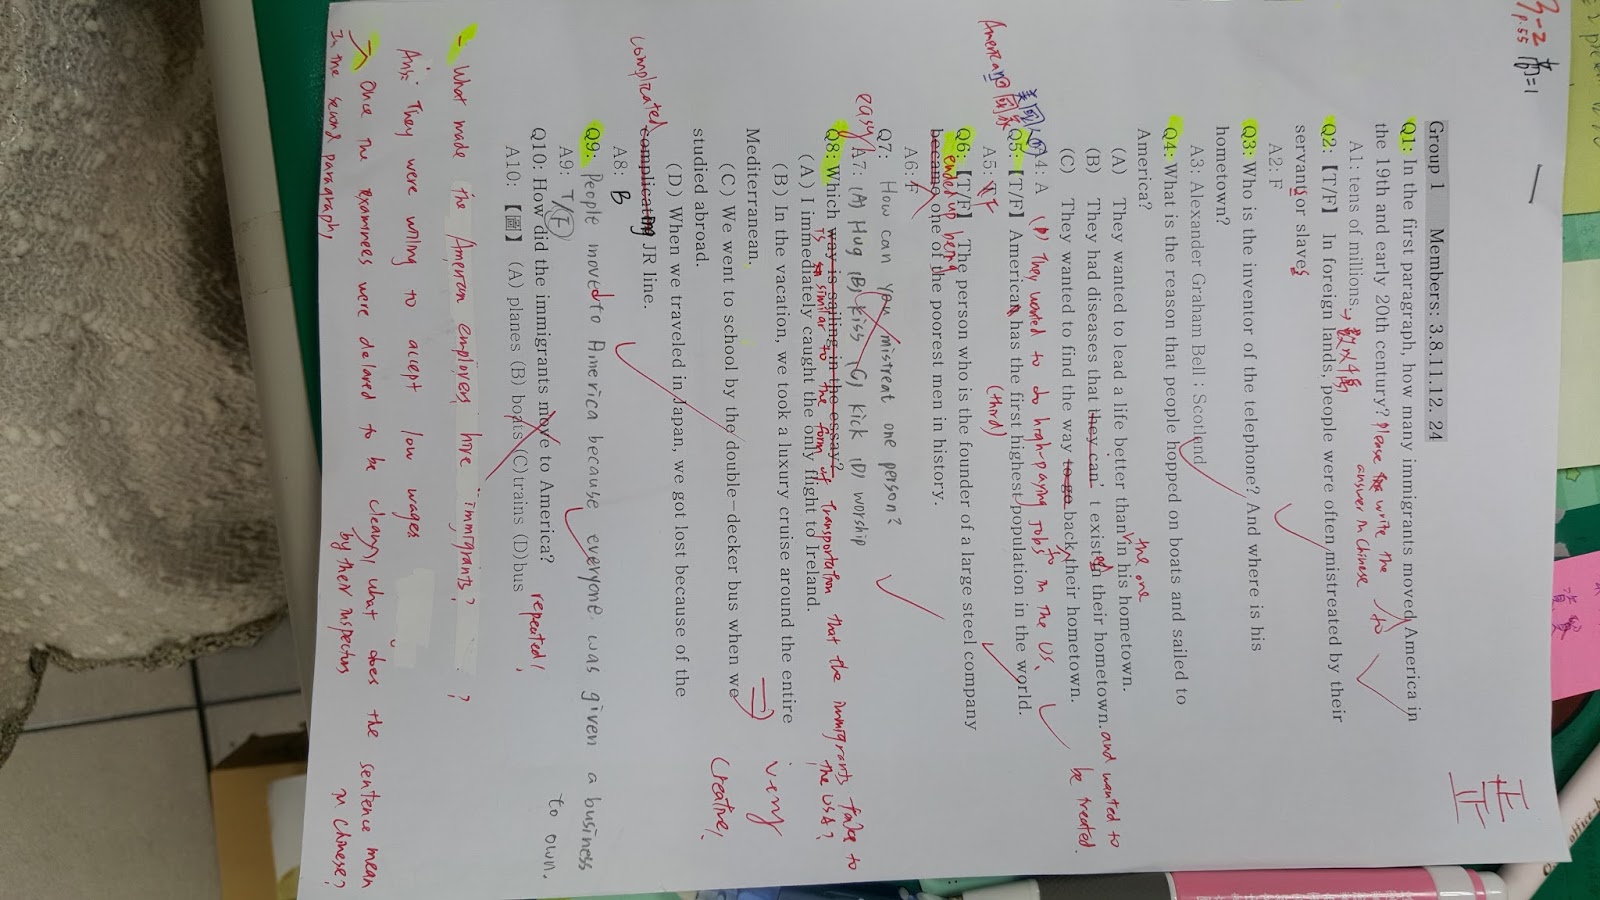 3-2 高=1
p.55
Group 1 Members: 3.8.11.12. 24
Q1: In the first paragraph, how many immigrants moved America in
to
the 19th and early 20th century? Please write the
answer in Chinese
A1: tens of millions.
Q2: 【T/F】 In foreign lands, people were often mistreated by their
servant or slaves
A2: F
Q3: Who is the inventor of the telephone? And where is his
hometown?
A3: Alexander Graham Bell ; Scotland
Q4: What is the reason that people hopped on boats and sailed to
America?
(A) They wanted to lead a life better than in his hometown.
the one
(B) They had diseases that they can' t exist in their hometown. and wanted to
be treated.
(C) They wanted to find the way to go back their hometown.
to
A4: A (D) They wanted to do high-paying jobs in the US.
美國人的
American 國家
Q5: 【T/F】 American has the first highest population in the world.
(third)
A5: F
Q6: 【T/F】 The person who is the founder of a large steel company
ended up being
became one of the poorest men in history.
A6:
Q7: How can you mistreat one person?
easy
A7: (A) Hug (B) kiss (C) kick (D) worship
Q8: Which way is sailing in the essay?
is similar to the form of transportation that the immigrants take to
the USA?
(A) I immediately caught the only flight to Ireland.
(B) In the vacation, we took a luxury cruise around the entire
Mediterranean.
(C) We went to school by the double-decker bus when we
studied abroad.
(D) When we traveled in Japan, we got lost because of the
complicating JR line.
complicated
very
creative!
A8: B
Q9: People moved to America because everyone was given a business
to own.
A9: T/F
Q10: How did the immigrants move to America?
repeated!
A10: 【圖】 (A) planes (B) boats (C)trains (D)bus
What made the American employers hire immigrants?
?
Ans: They were willing to accept low wages
Once the examinees were declared to be clean, what does the sentence mean
by their inspectors
in Chinese?
In the second paragraph,